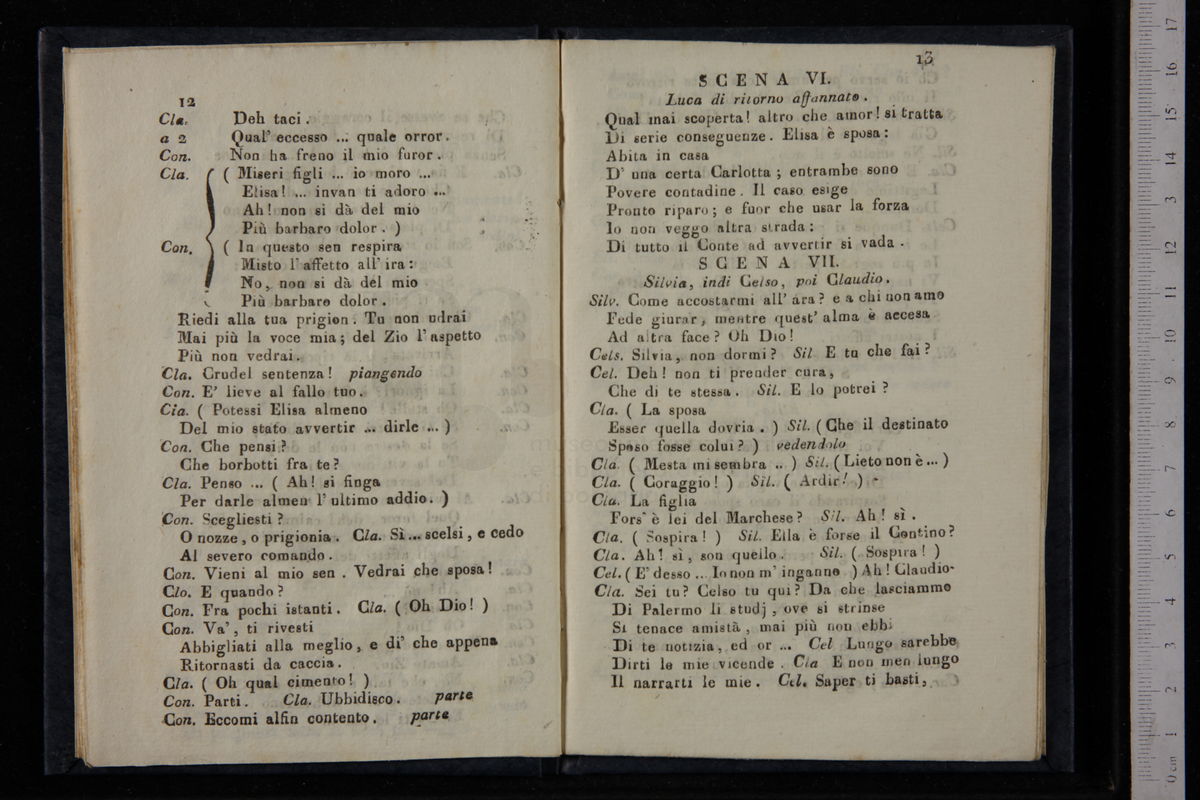 12
Cla. Deh taci.
a 2 Qual' eccesso ... quale orror.
Con. Non ha freno il mio furor.
Cla. ( Miseri figli ... io moro ...
Elisa! ... invan ti adoro ...
Ah! non si dà del mio
Più barbaro dolor. )
Con. ( In questo sen respira
Misto l'affetto all' ira:
No, non si dà del mio
Più barbaro dolor.
Riedi alla tua prigion. Tu non udrai
Mai più la voce mia; del Zio l'aspetto
Più non vedrai.
Cla. Crudel sentenza! piangendo
Con. E' lieve al fallo tuo.
Cia. ( Potessi Elisa almeno
Del mio stato avvertir ... dirle ... )
Con. Che pensi?
Che borbotti fra te?
Cla. Penso ... ( Ah! si finga
Per darle almen l' ultimo addio. )
Con. Scegliesti?
O nozze, o prigionia. Cla. Sì... scelsi, e cedo
Al severo comando.
Con. Vieni al mio sen. Vedrai che sposa!
Clo. E quando?
Con. Fra pochi istanti. Cla. ( Oh Dio! )
Con. Va', ti rivesti
Abbigliati alla meglio, e di' che appena
Ritornasti da caccia.
Cla. ( Oh qual cimento! )
Con. Parti. Cla. Ubbidisco. parte
Con. Eccomi alfin contento. parte
13
SCENA VI.
Luca di ritorno affannato.
Qual mai scoperta! altro che amor! si tratta
Di serie conseguenze. Elisa è sposa:
Abita in casa
D' una certa Carlotta; entrambe sono
Povere contadine. Il caso esige
Pronto riparo; e fuor che usar la forza
Io non veggo altra strada:
Di tutto il Conte ad avvertir si vada.
SCENA VII.
Silvia, indi Celso, poi Claudio.
Silv. Come accostarmi all' ara? e a chi non amo
Fede giurar, mentre quest' alma è accesa
Ad altra face? Oh Dio!
Cels. Silvia, non dormi? Sil E tu che fai?
Cel. Deh! non ti prender cura,
Che di te stessa. Sil. E lo potrei?
Cla. ( La sposa
Esser quella dovria. ) Sil. (Che il destinato
Sposo fosse colui? ) vedendolo
Cla. ( Mesta mi sembra .. ) Sil. (Lieto non è... )
Cla. ( Coraggio! ) Sil. ( Ardir! )
Cla. La figlia
Fors' è lei del Marchese? Sil. Ah! sì.
Cla. ( Sospira! ) Sil. Ella è forse il Contino?
Cla. Ah! sì, son quello. Sil. ( Sospira! )
Cel. ( E' desso ... Io non m' inganno ) Ah! Claudio-
Cla. Sei tu? Celso tu qui? Da che lasciammo
Di Palermo li studj, ove si strinse
Si tenace amistà, mai più non ebbi
Di te notizia, ed or ... Cel Lungo sarebbe
Dirti le mie vicende. Cla E non men lungo
Il narrarti le mie. Cel. Saper ti basti,